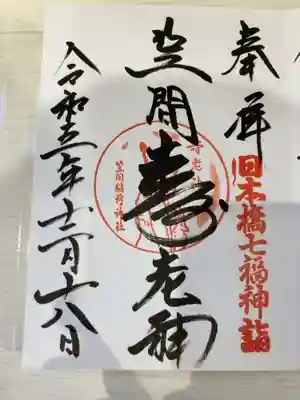 奉拝
日本橋七福神詣
笠間
寿老神
笠間稲荷神社
令和三年十二月十八日